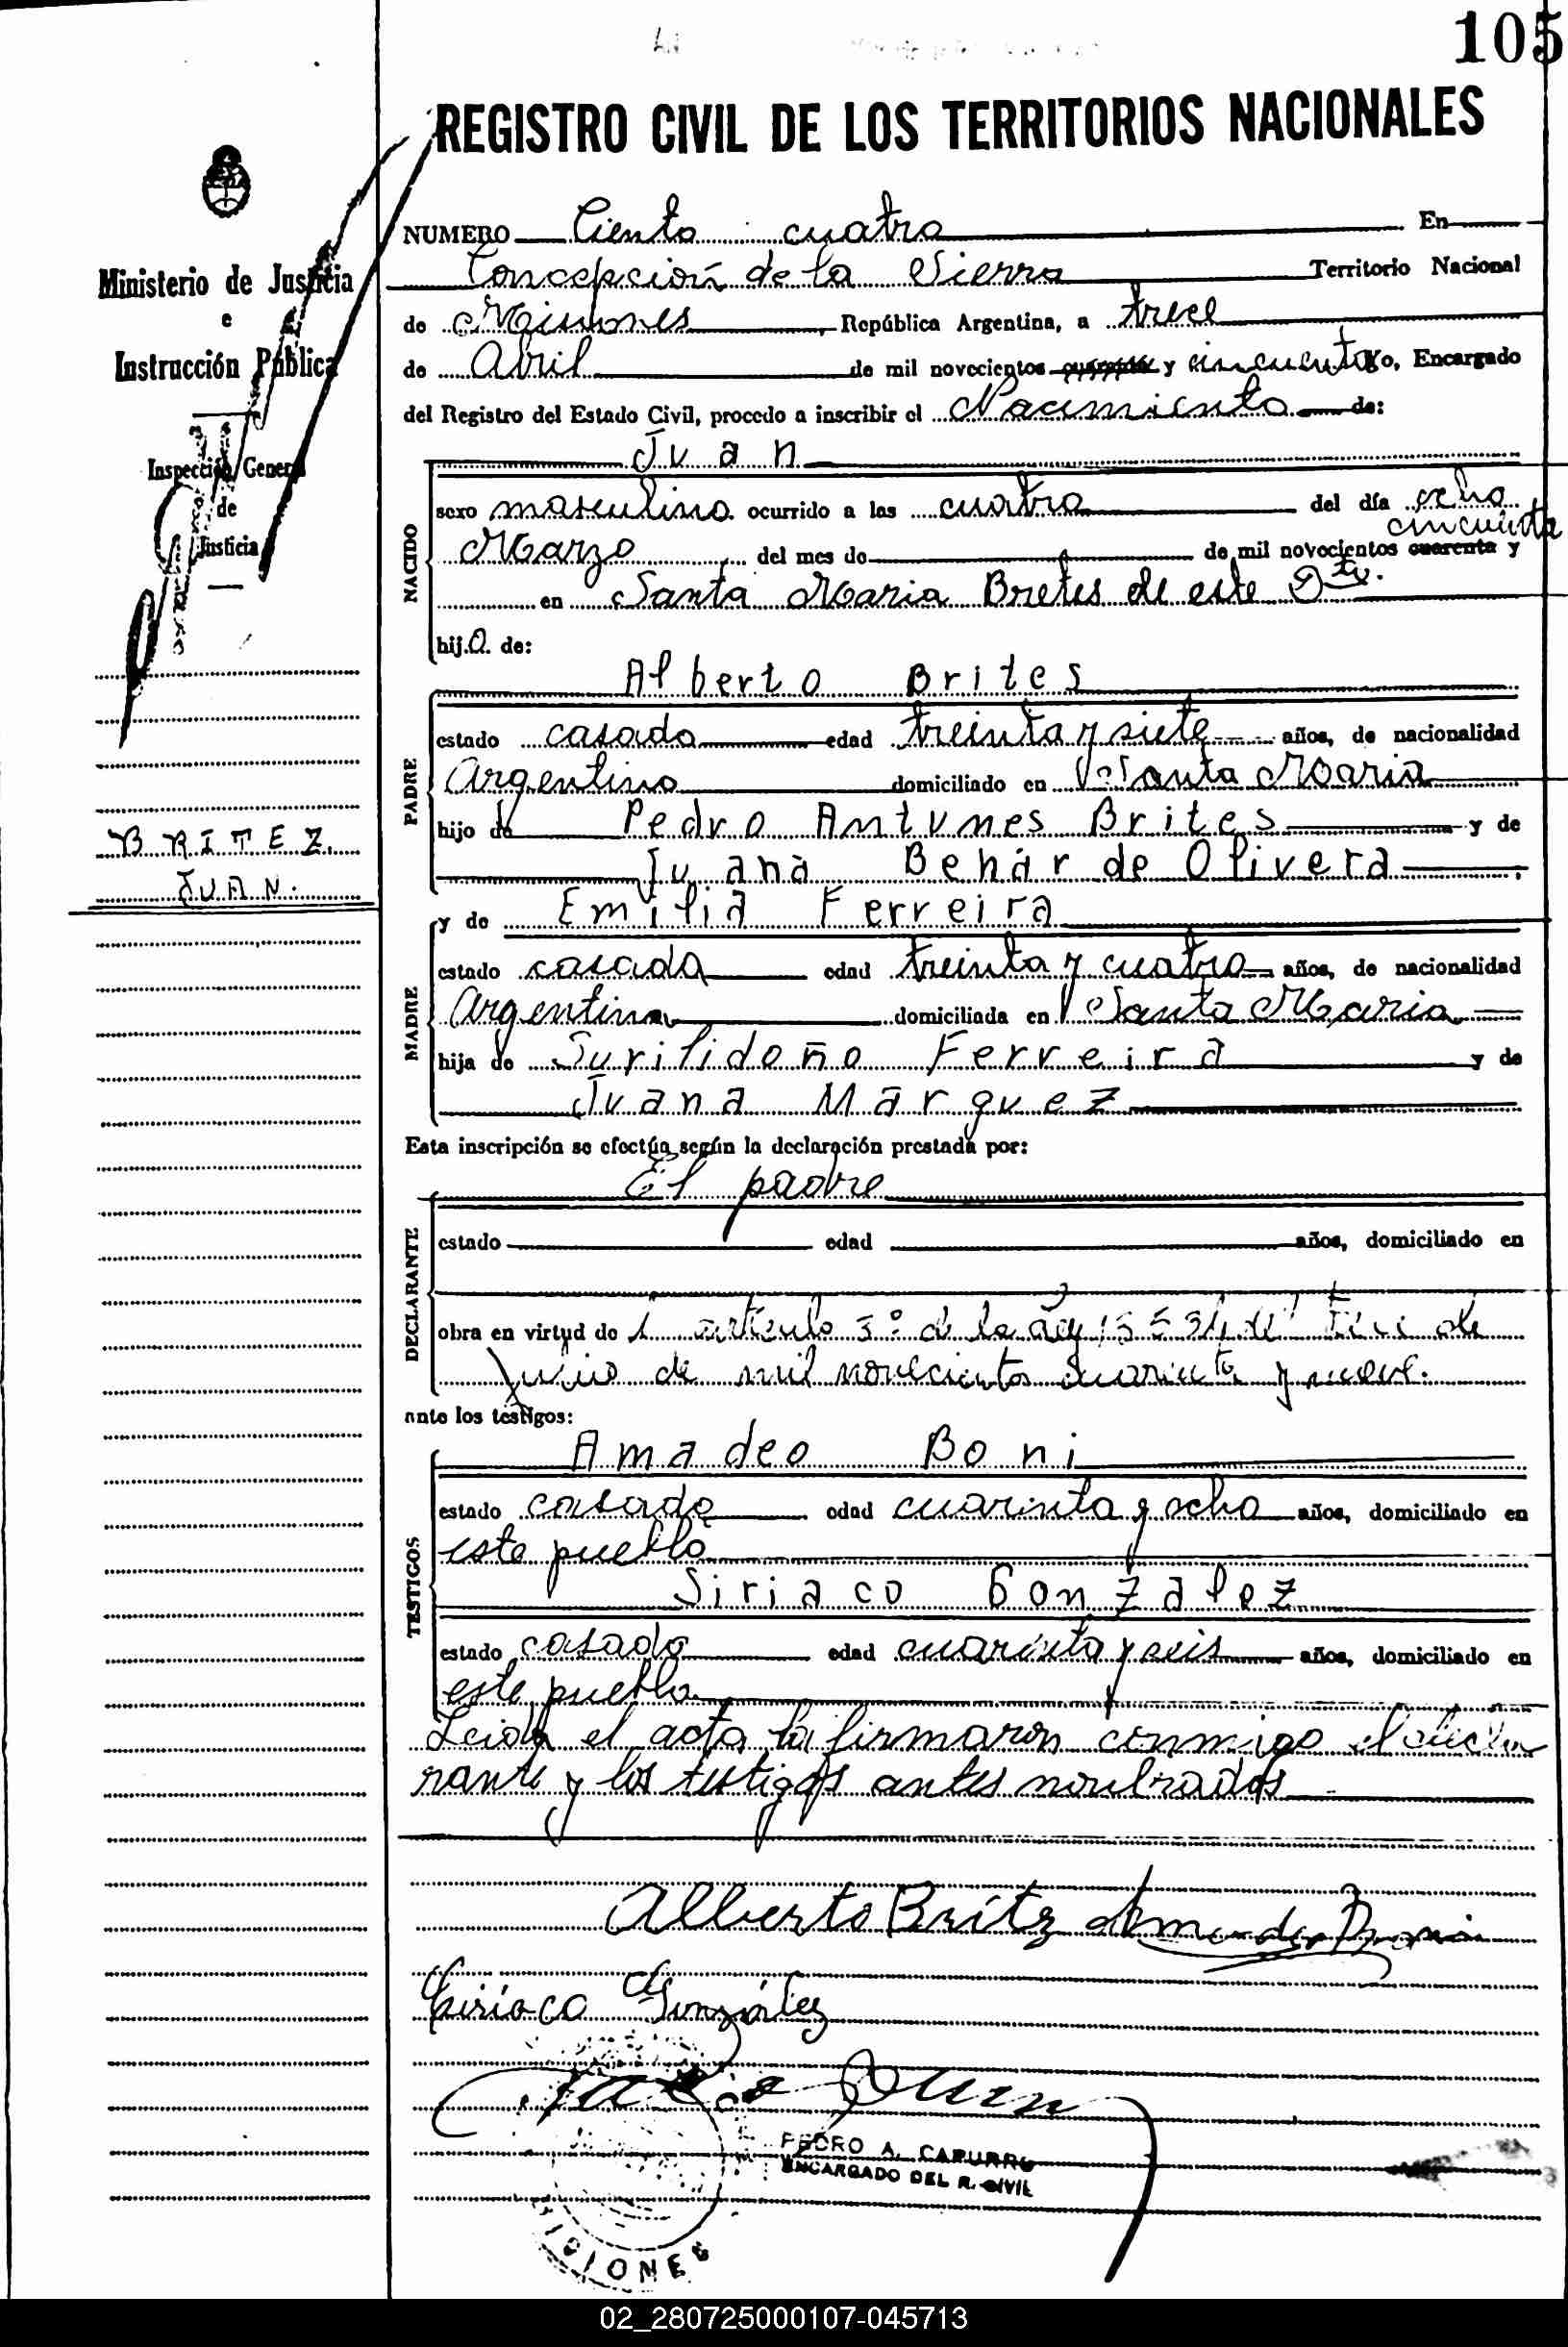 105
REGISTRO CIVIL DE LOS TERRITORIOS NACIONALES
Ministerio de Justicia
e
Instrucción Pública
Inspección General
de
Justicia
BRITEZ
JUAN.
NUMERO Ciento cuatro En
Concepción de la Sierra Territorio Nacional
de Misiones, República Argentina, a trece
de Abril de mil novecientos y cincuenta Yo, Encargado
del Registro del Estado Civil, procedo a inscribir el Nacimiento de:
Juan
NACIDO
sexo masculino ocurrido a las cuatro del día ocho
cincuenta
Marzo del mes de de mil novecientos cuarenta y
en Santa Maria Bretes de este Dto.
hijo. de:
Alberto Brites
PADRE
estado casado edad treinta y siete años, de nacionalidad
Argentino domiciliado en Santa Maria
hijo de Pedro Antunes Brites y de
Juana Behár de Olivera
y de Emilia Ferreira
MADRE
estado casada edad treinta y cuatro años, de nacionalidad
Argentina domiciliada en Santa Maria
hija de Ferreira y de
Juana Marquez
Esta inscripción se efectúa según la declaración prestada por:
El padre
DECLARANTE
estado edad años, domiciliado en
obra en virtud de artículo 3º de la Ley de
de mil novecientos cuarenta y nueve.
ante los testigos:
Amadeo Boni
TESTIGOS
estado casado edad cuarenta y ocho años, domiciliado en
este pueblo
Siriaco Gonzalez
estado casado edad cuarenta y seis años, domiciliado en
este pueblo
Leida el acta la firmaron conmigo el decla
rante y los testigos antes nombrados
Alberto Britz Amadeo Boni
Ciriaco González
PEDRO A. CAPURRO
ENCARGADO DEL R. CIVIL
MISIONES
02_280725000107-045713